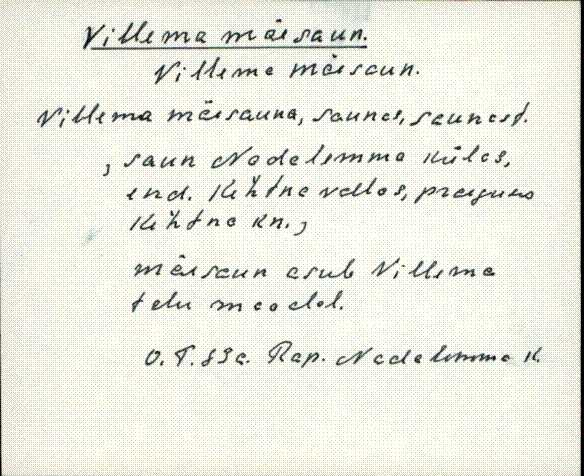 Villema mäesaun.
Villema mäesaun.
Villema mäesauna, saunas, saunast.
, saun Nadalemma külas,
end. Kehtna vallas, praegune
Kehtna kn.,
mäesaun asub Villema
talu maadel.
O.T. 89a. Rap. Nadalemma k.